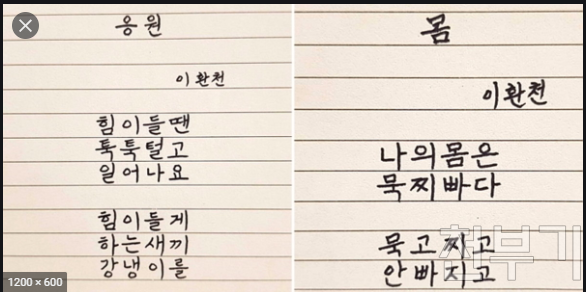 응원
이환천
힘이들땐
툭툭털고
일어나요
힘이들게
하는새끼
강냉이를
몸
이환천
나의몸은
묵찌빠다
묵고찌고
안빠지고
첨부기
1200 × 600